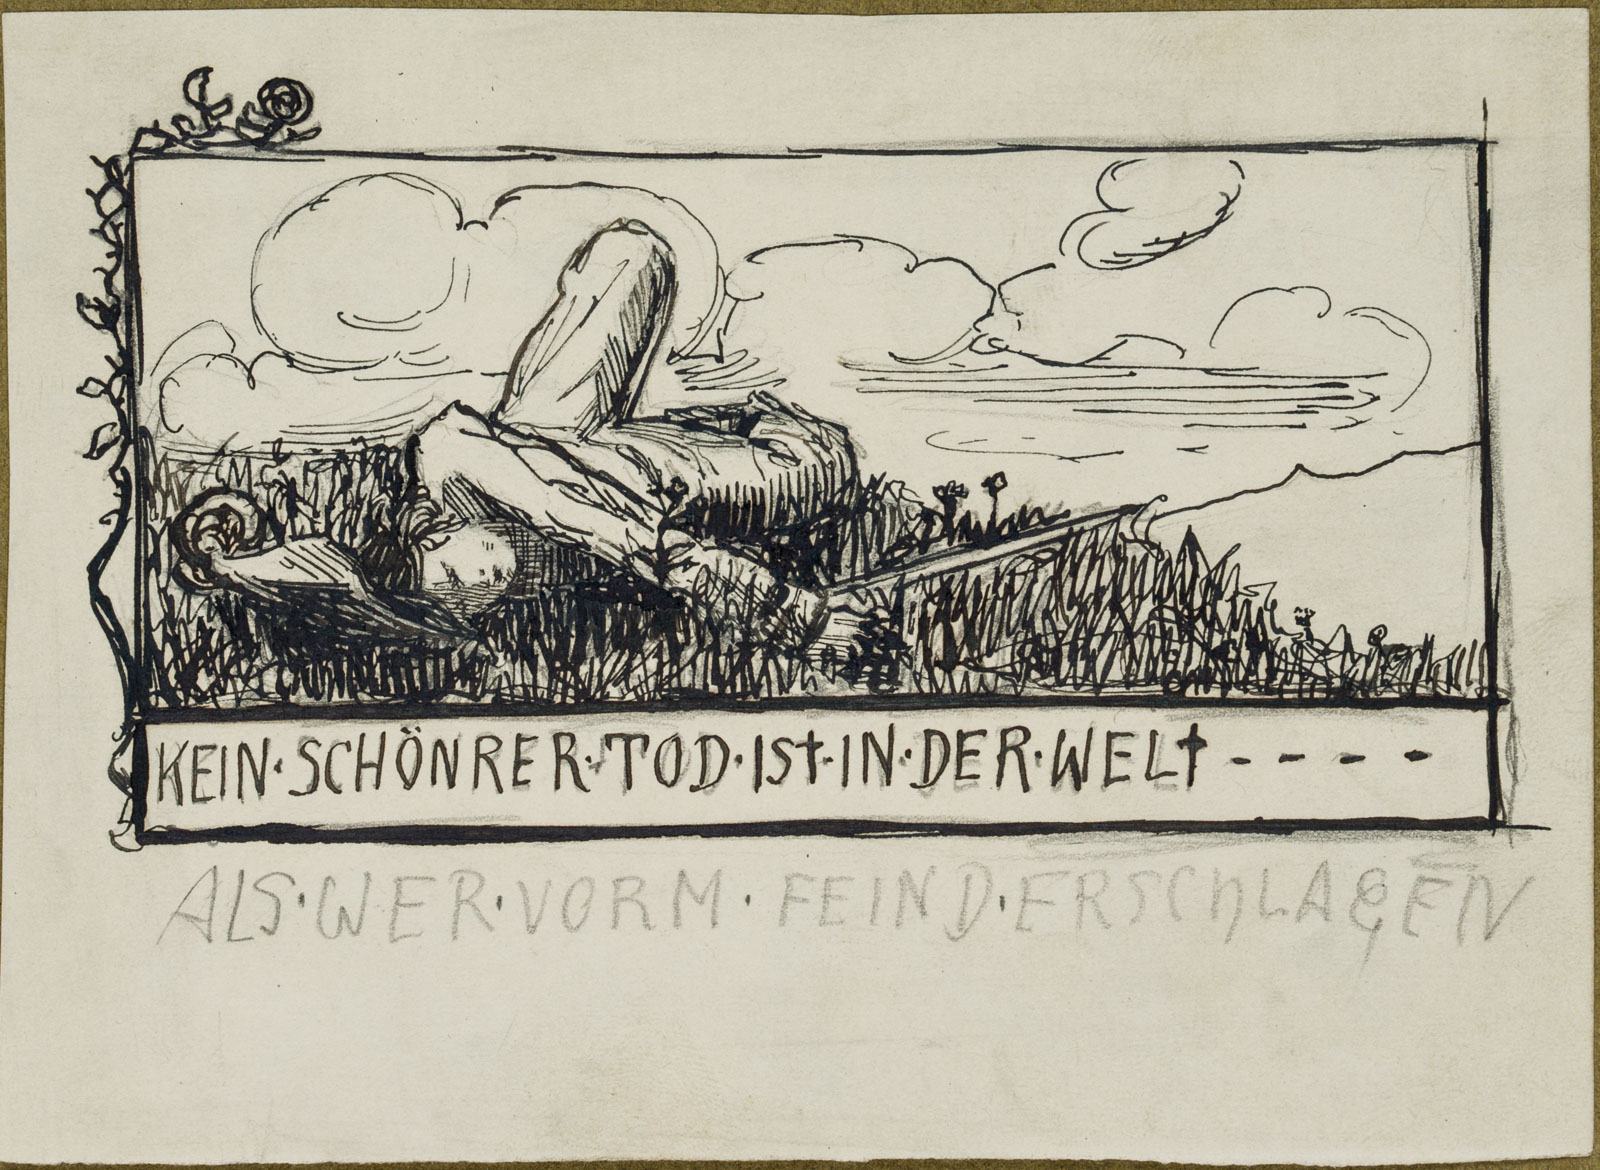 KEIN·SCHÖNRER·TOD·IST·IN·DER·WELT - - - -
ALS·WER·VORM·FEIND·ERSCHLAGEN